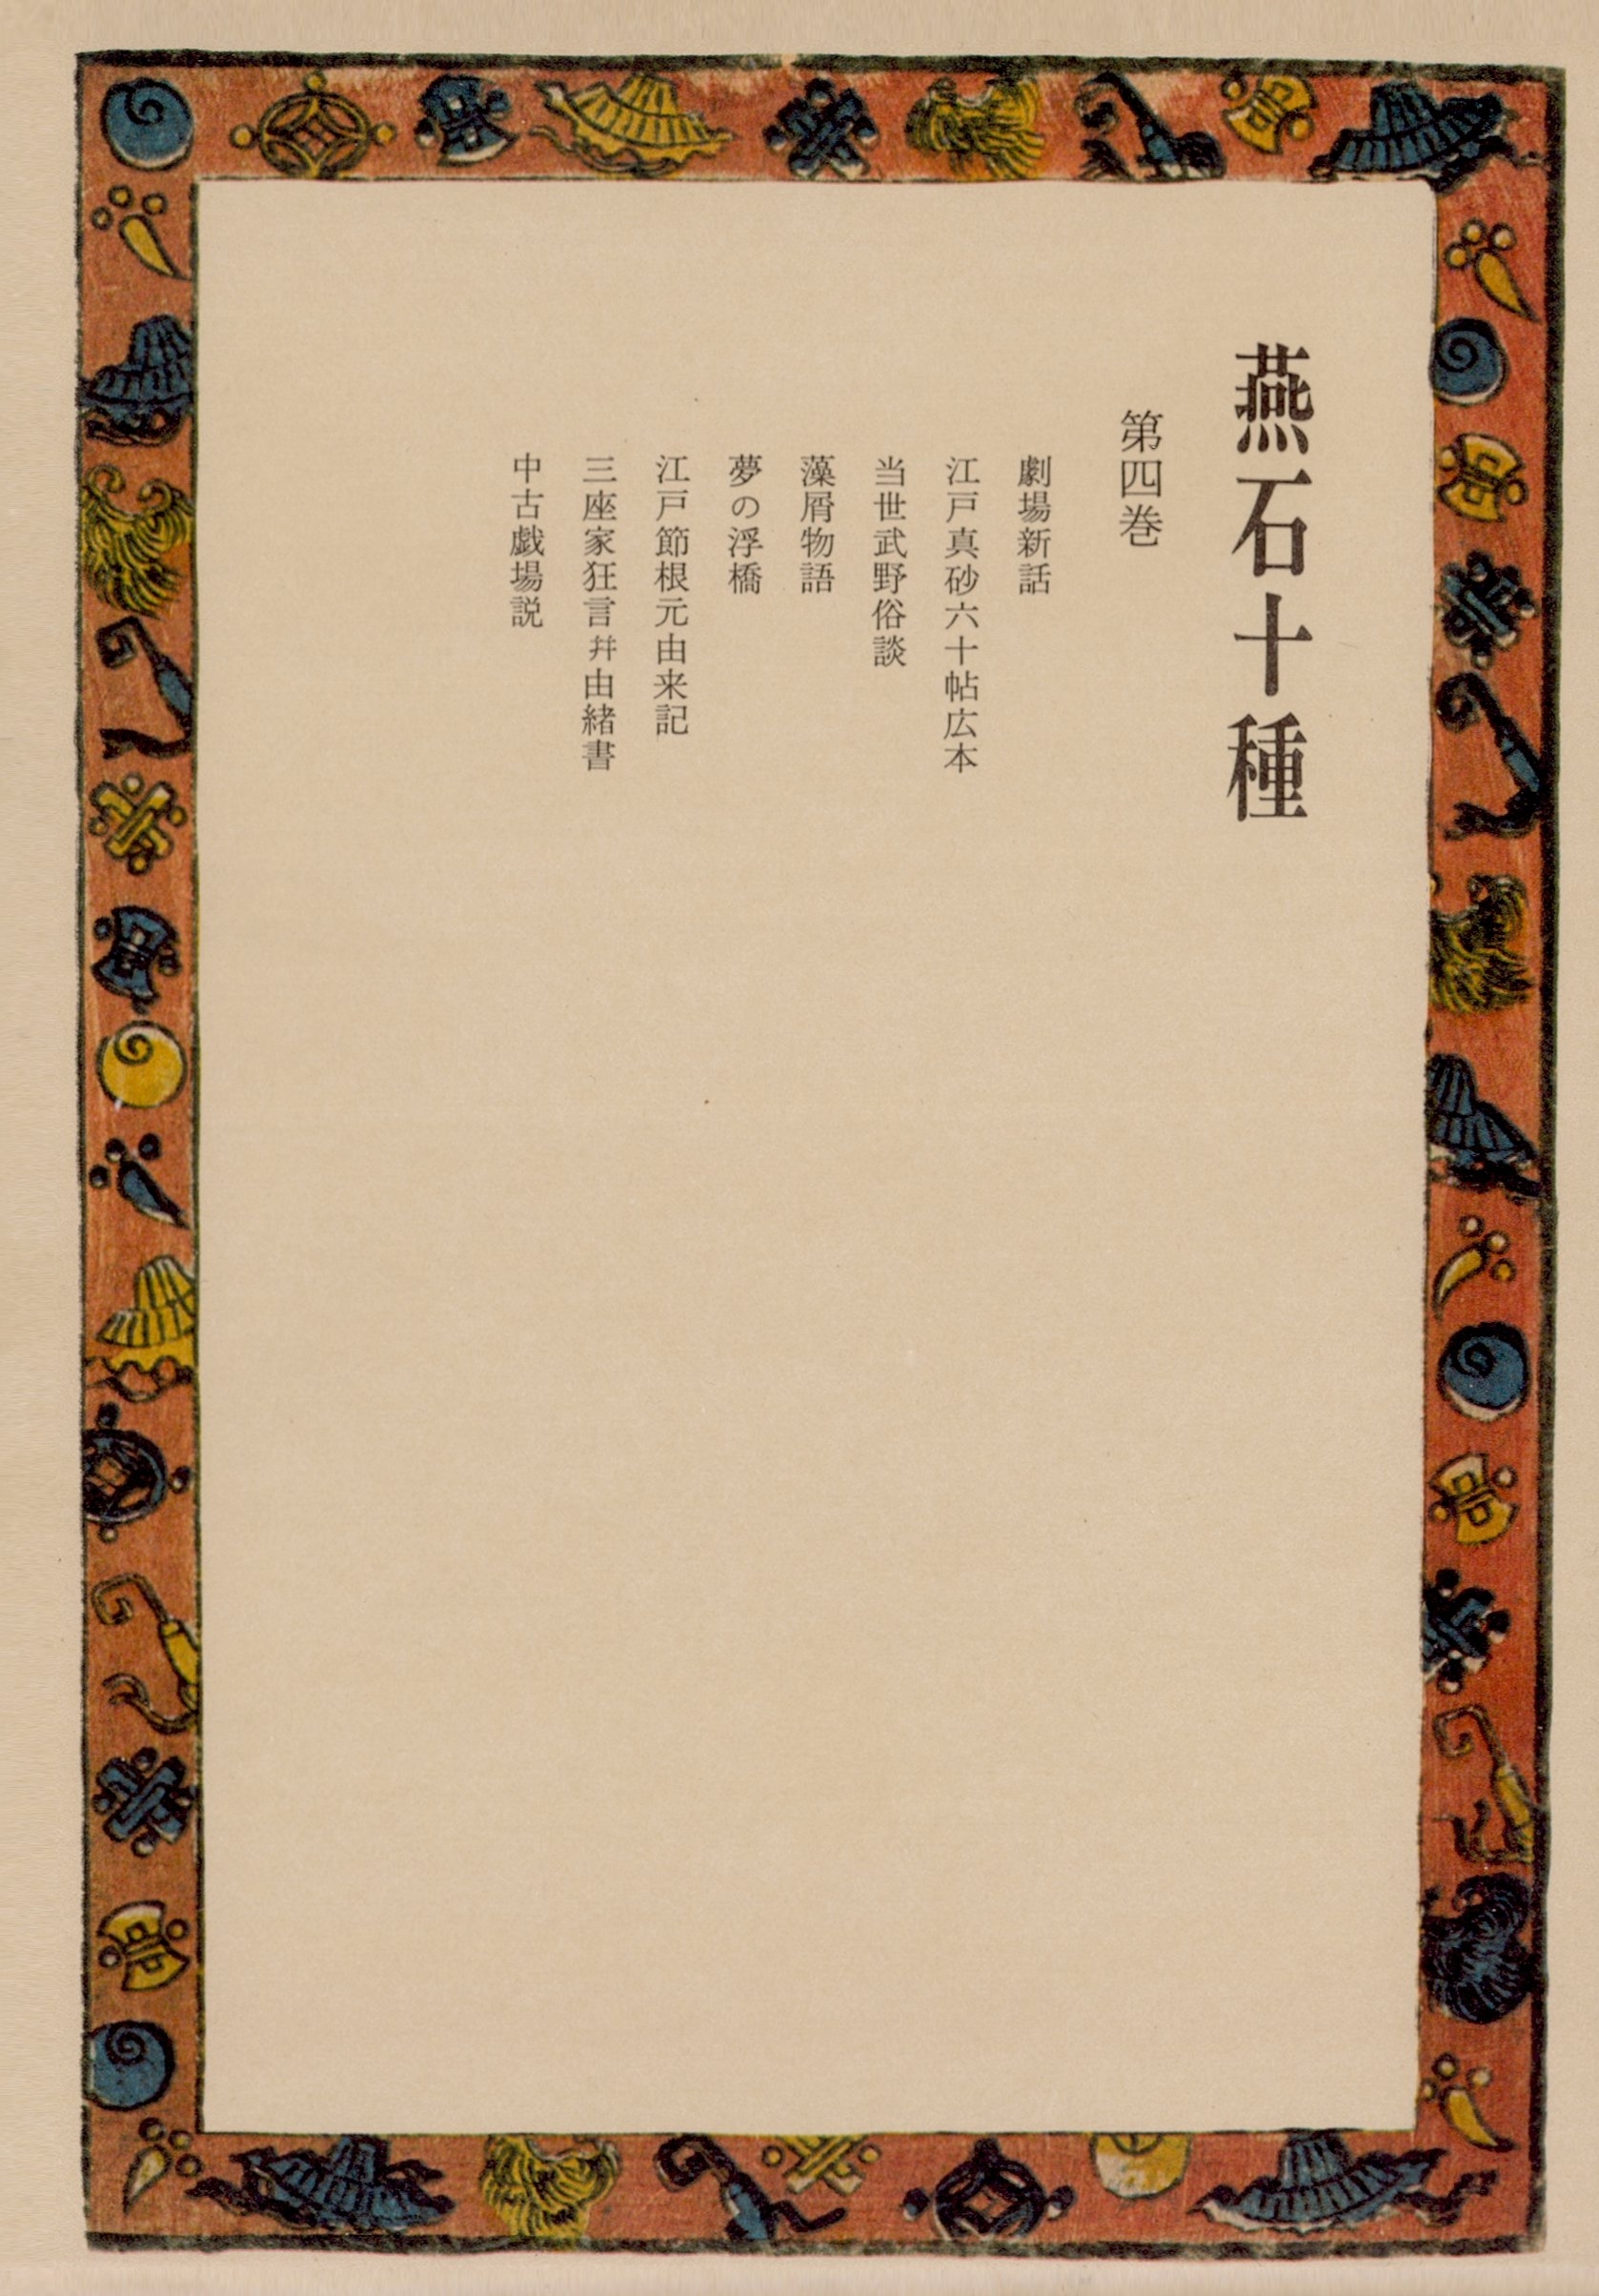 燕石十種
第四巻
劇場新話
江戸真砂六十帖広本
当世武野俗談
藻屑物語
夢の浮橋
江戸節根元由来記
三座家狂言幷由緒書
中古戯場説